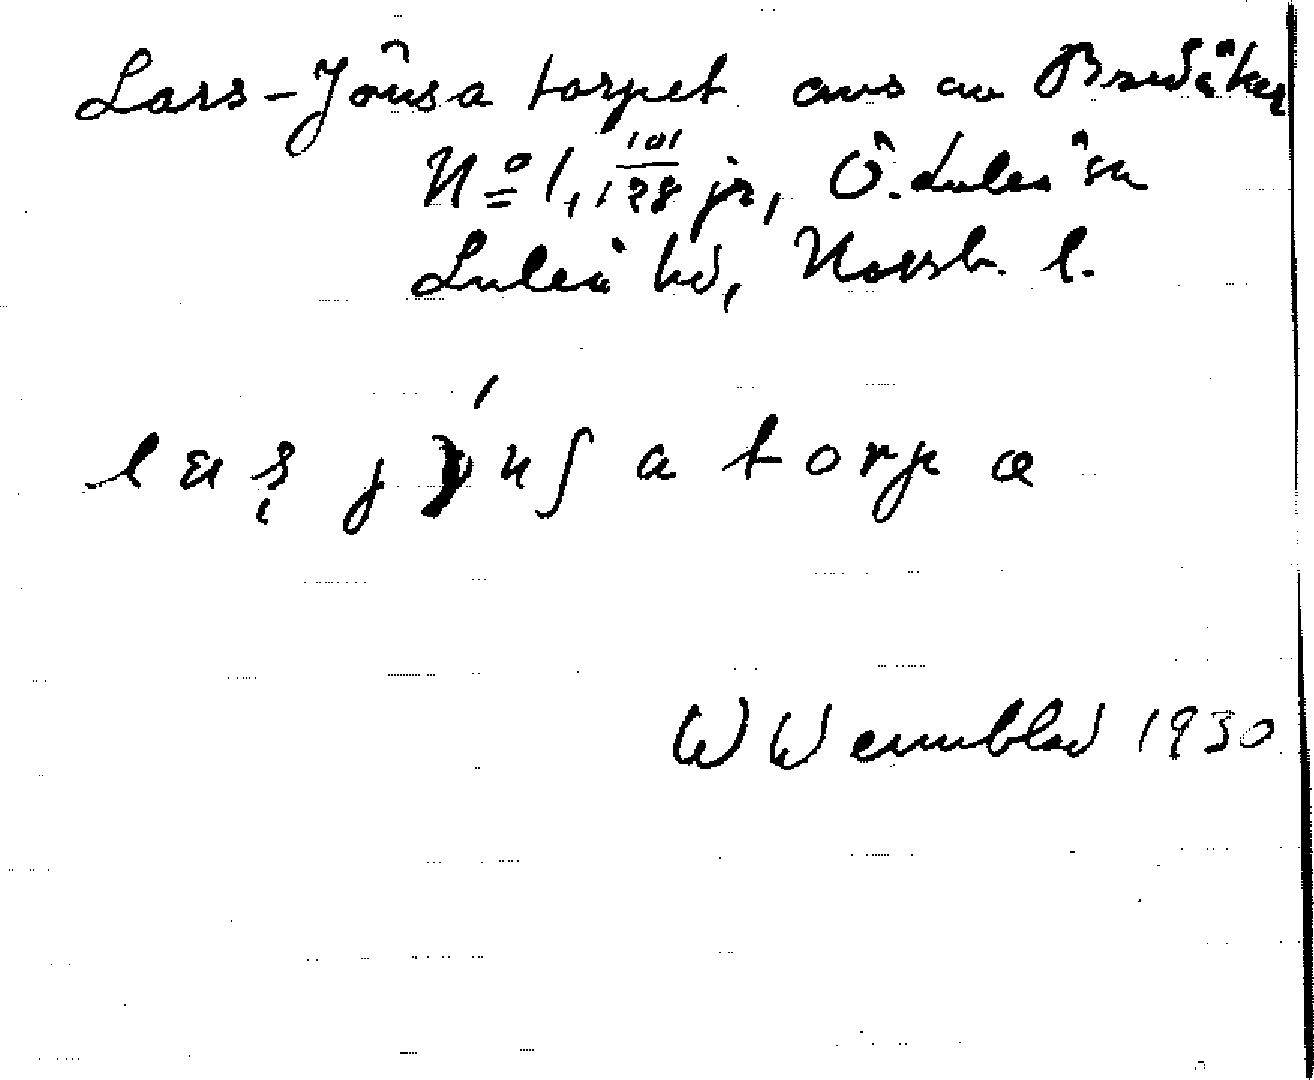 Lars-Jönsa torpet avs av Bredåker
No 1, 1 101/128 jr, Ö. Luleå sn
Luleå hd, Norrb. l.
torpa
W Wennblad 1930